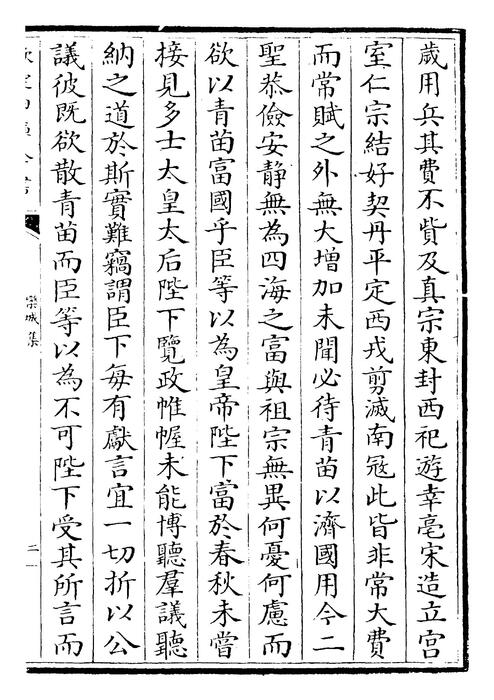 歲用兵其費不貲及真宗東封西祀遊幸亳宋造立宫
室仁宗結好契丹平定西戎剪滅南冦此皆非常大費
而常賦之外無大增加未聞必待青苗以濟國用今二
聖恭儉安静無為四海之富與祖宗無異何憂何慮而
欲以青苗富國乎臣等以為皇帝陛下富於春秋未嘗
接見多士太皇太后陛下覽政帷幄未能博聽羣議聽
納之道於斯實難竊謂臣下每有獻言宜一切折以公
議彼既欲散青苗而臣等以為不可陛下受其所言而
欒城集
二